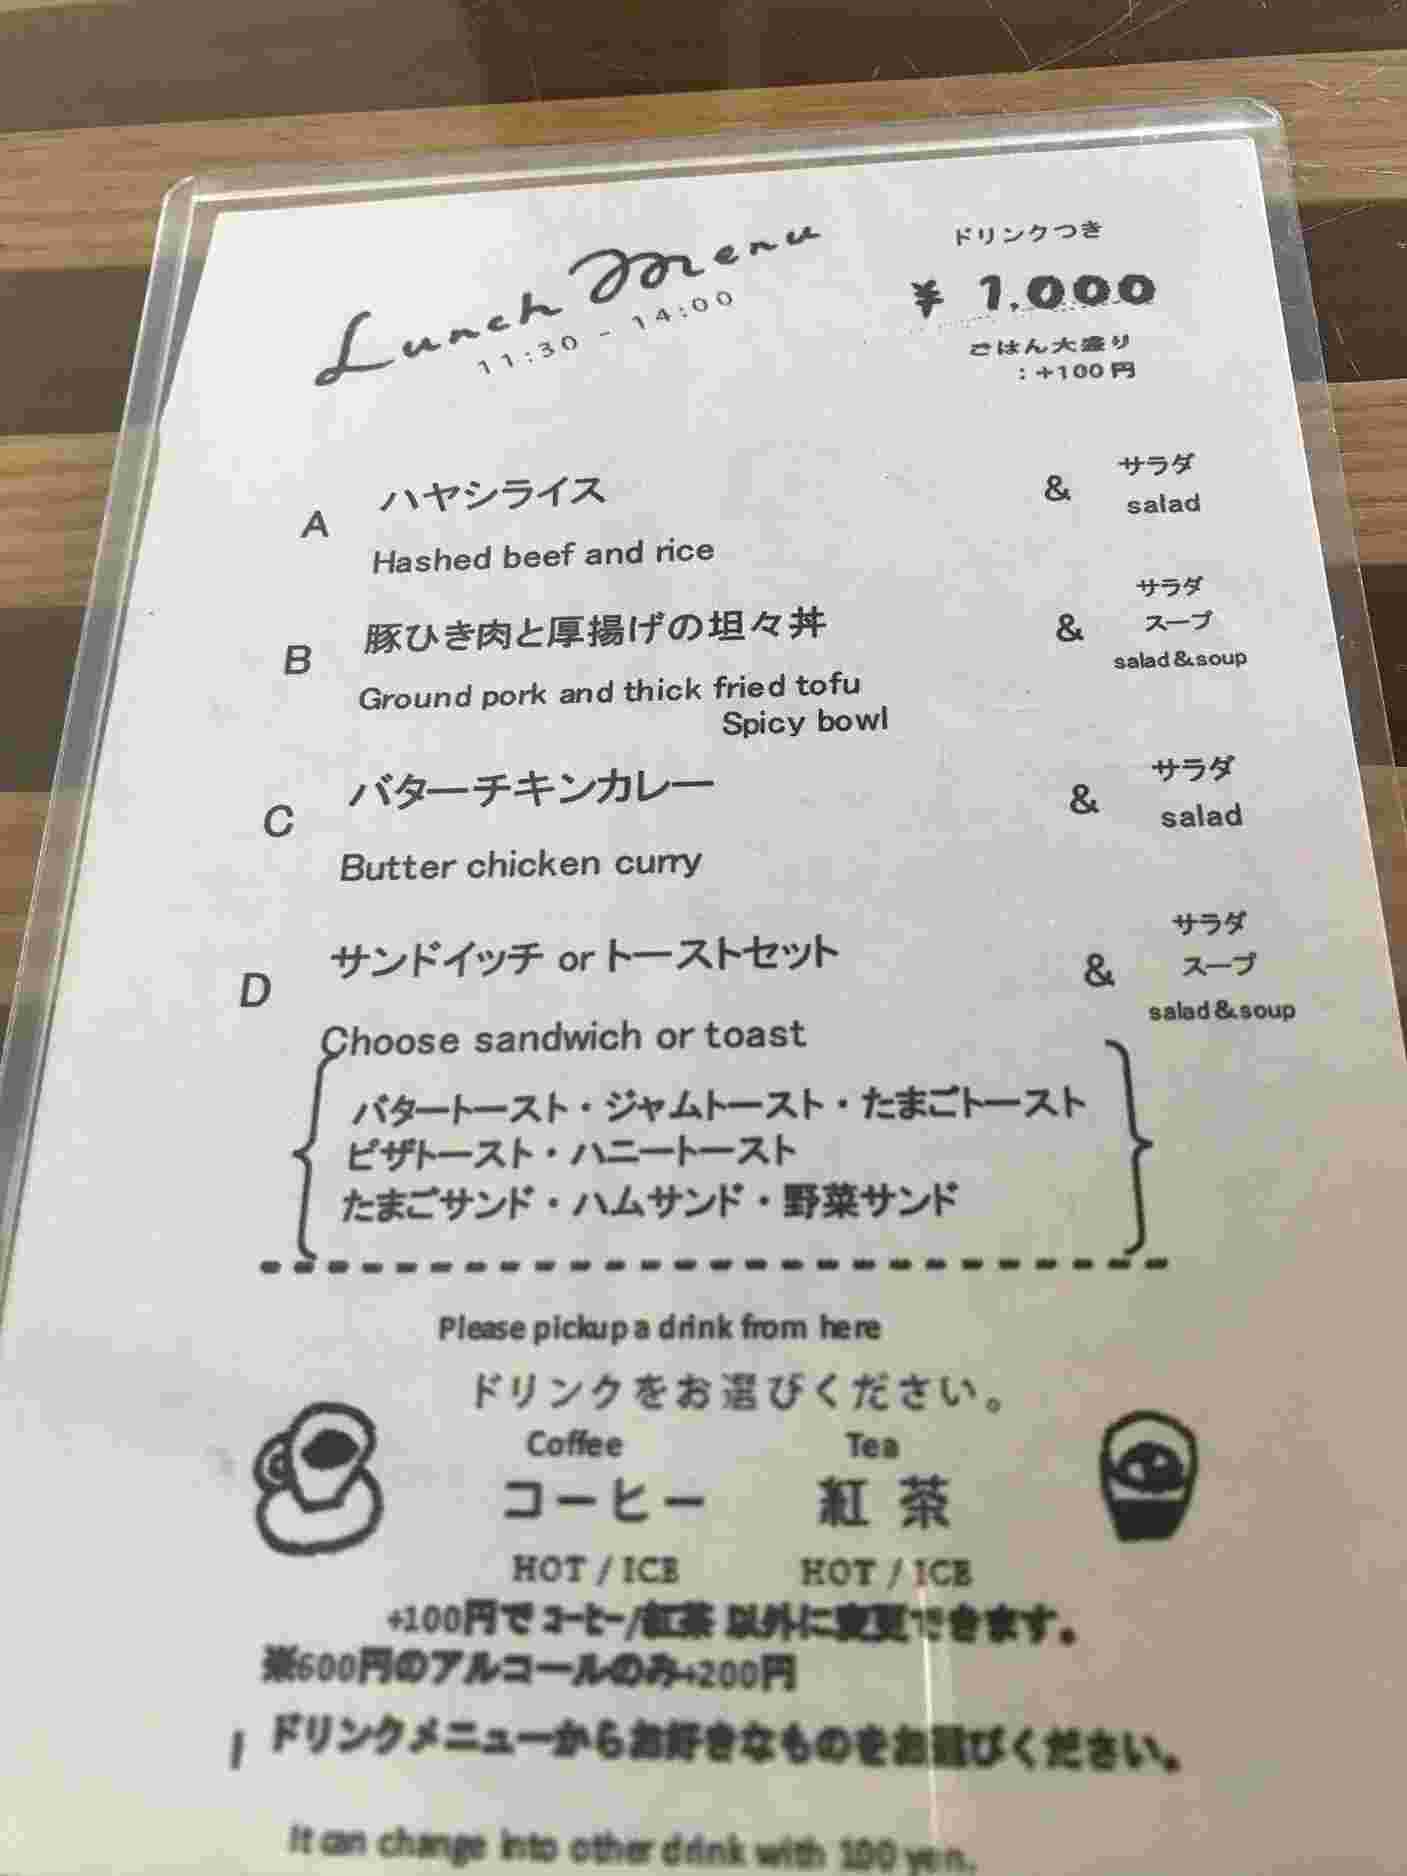 Lunch Menu
11:30 - 14:00
ドリンクつき
¥ 1,000
ごはん大盛り
:+100円
A ハヤシライス & サラダ
Hashed beef and rice salad
B 豚ひき肉と厚揚げの坦々丼 & サラダ
スープ
Ground pork and thick fried tofu salad&soup
Spicy bowl
C バターチキンカレー & サラダ
Butter chicken curry salad
D サンドイッチ or トーストセット & サラダ
スープ
Choose sandwich or toast salad&soup
バタートースト・ジャムトースト・たまごトースト
ピザトースト・ハニートースト
たまごサンド・ハムサンド・野菜サンド
Please pickup a drink from here
ドリンクをお選びください。
Coffee Tea
コーヒー 紅茶
HOT / ICE HOT / ICE
+100円で コーヒー/紅茶 以外に変更できます。
※600円のアルコールのみ+200円
ドリンクメニューからお好きなものをお選びください。
It can change into other drink with 100 yen.